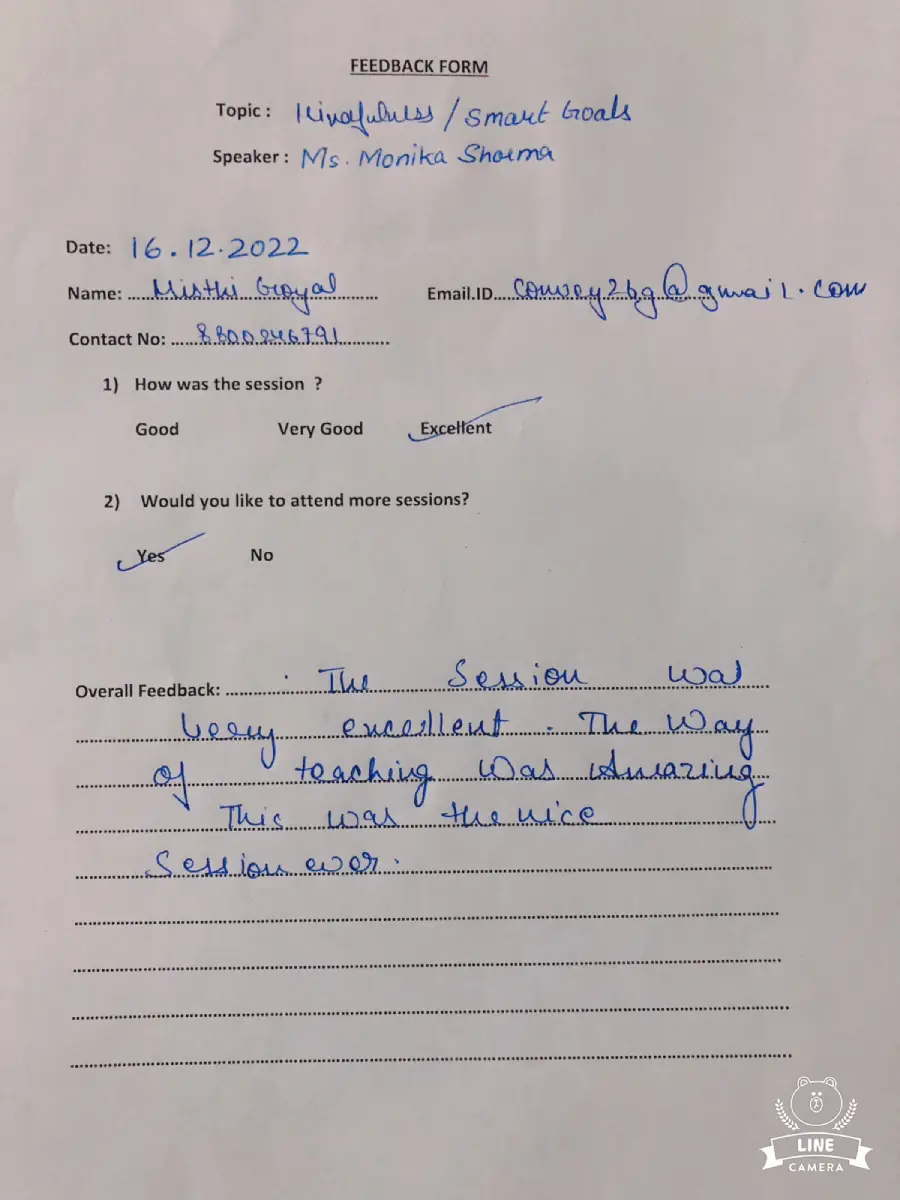 FEEDBACK FORM
Topic : Mindfulness / Smart Goals
Speaker : Ms. Monika Sharma
Date: 16.12.2022
Name: Misthi Goyal Email.ID convey2bg@gmail.com
Contact No: 8800246791
1) How was the session ?
Good Very Good Excellent
2) Would you like to attend more sessions?
Yes No
Overall Feedback: The Session was
very excellent. The Way
of teaching was Amazing
This was the nice
Session ever.
LINE
CAMERA